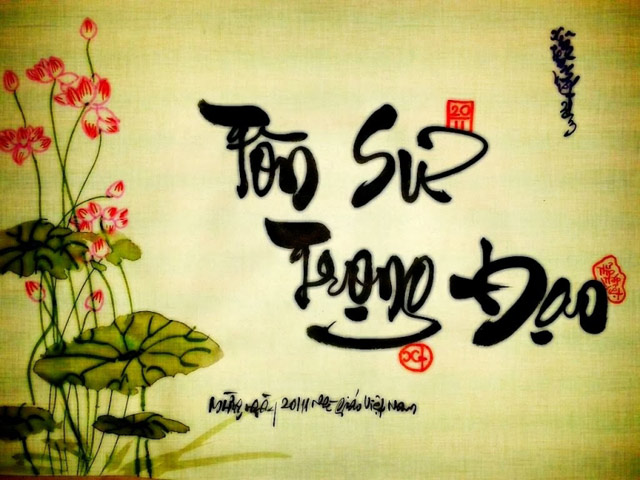 Tôn Sư
20
11
Trọng Đạo
Mừng ngày 20/11 Nhà giáo Việt Nam